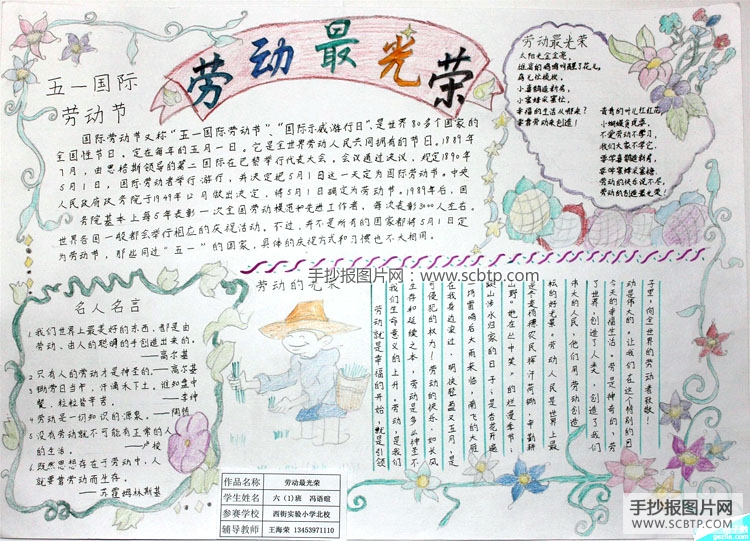 劳动最光荣
五一国际
劳动节
国际劳动节又称“五一国际劳动节”、“国际示威游行日”,是世界80多个国家的
全国性节日。定在每年的五月一日。它是全世界劳动人民共同拥有的节日。1889年
7月,由恩格斯领导的第二国际在巴黎举行代表大会。会议通过决议,规定1890年
5月1日,国际劳动者举行游行,并决定把5月1日这一天定为国际劳动节。中央
人民政府政务院于1949年12月做出决定,将5月1日确定为劳动节。1989年后,国
务院基本上每5年表彰一次全国劳动模范和先进工作者,每次表彰3000人左右。
世界各国一般都会举行相应的庆祝活动。不过,并不是所有的国家都将5月1日定
为劳动节,那些同过“五一”的国家,具体的庆祝方式和习惯也不大相同。
劳动最光荣
太阳光金亮亮,
雄鸡唱
小喜鹊造新房,
小蜜蜂采蜜忙。
幸福的生活从哪来?
要靠劳动来创造!
青青的叶儿红红花,
小蝴蝶贪玩耍。
不爱劳动不学习,
我们大家不学它。
要学喜鹊造新房,
要学蜜蜂采蜜糖。
劳动的快乐说不尽,
劳动的创造最光荣!
手抄报图片网:www.scbtp.com
名人名言
1.我们世界上最美好的东西,都是由
劳动、由人的聪明的手创造出来的。
——高尔基
2.只有人的劳动才是神圣的。——高尔基
3.锄禾日当午,汗滴禾下土,谁知盘中
餐,粒粒皆辛苦。——李绅
4.劳动是一切知识的源泉。——陶铸
5.没有劳动就不可能有正常的人
的生活。——卢梭
6.既然思想存在于劳动中,人
就要靠劳动而生存。
——苏霍姆林斯基
劳动的光荣
劳动就是幸福的开始,就是引领
我们生命意义的上升,劳动,是我们
生存和延续之本,劳动是多么神圣不
可侵犯的权力!劳动的快乐,如长风
在我身边滚过,明快轻盈又五月,是
一场雷鸣后大雨来临,南飞的大雁
跋山涉水归家的日子;是杏花开遍
山野,“她在丛中笑”的烂漫季节;
更是千顷稻农民挥汗荷锄,辛勤耕
耘的好光景。劳动人民是世界上最
伟大的人民,他们用劳动创造
了世界,创造了人类又创造了我们
今天的幸福生活。劳动是神奇的,劳
动是伟大的,让我们在这个特别的日
子里,向全世界的劳动者致敬!
作品名称 劳动最光荣
学生姓名 六(1)班 冯语暄
参赛学校 西街实验小学北校
辅导教师 王海荣 13453971110
手抄报图片网
WWW.SCBTP.COM